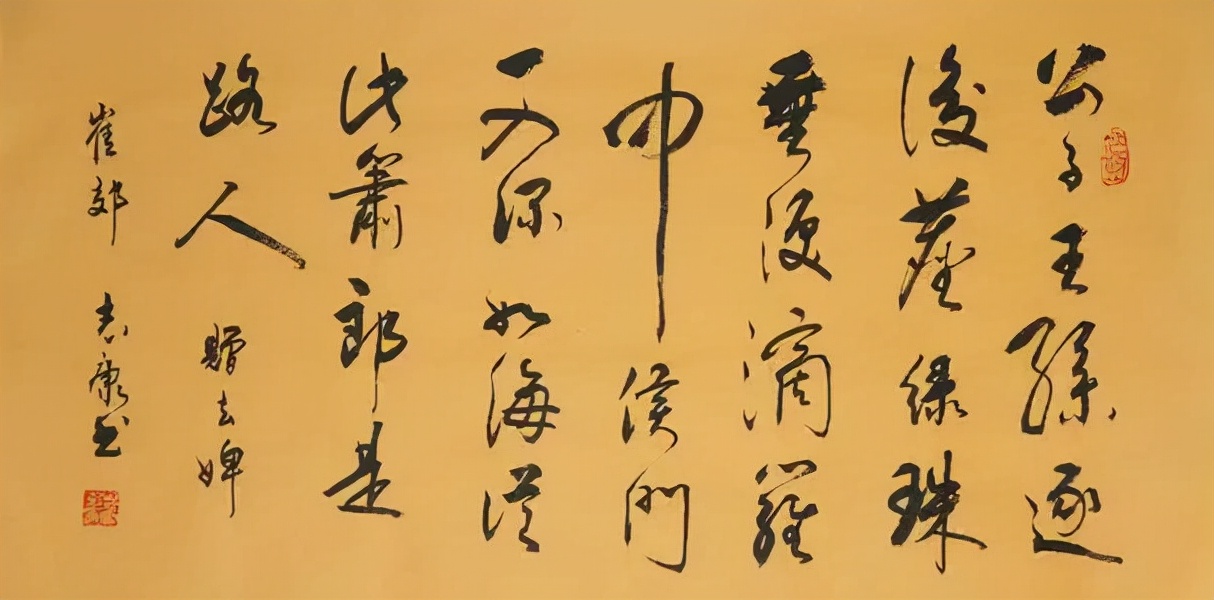 公子王孫逐
後塵綠珠
垂淚滴羅
巾侯門
一入深如海從
此蕭郎是
路人 贈去婢
崔郊 志康书